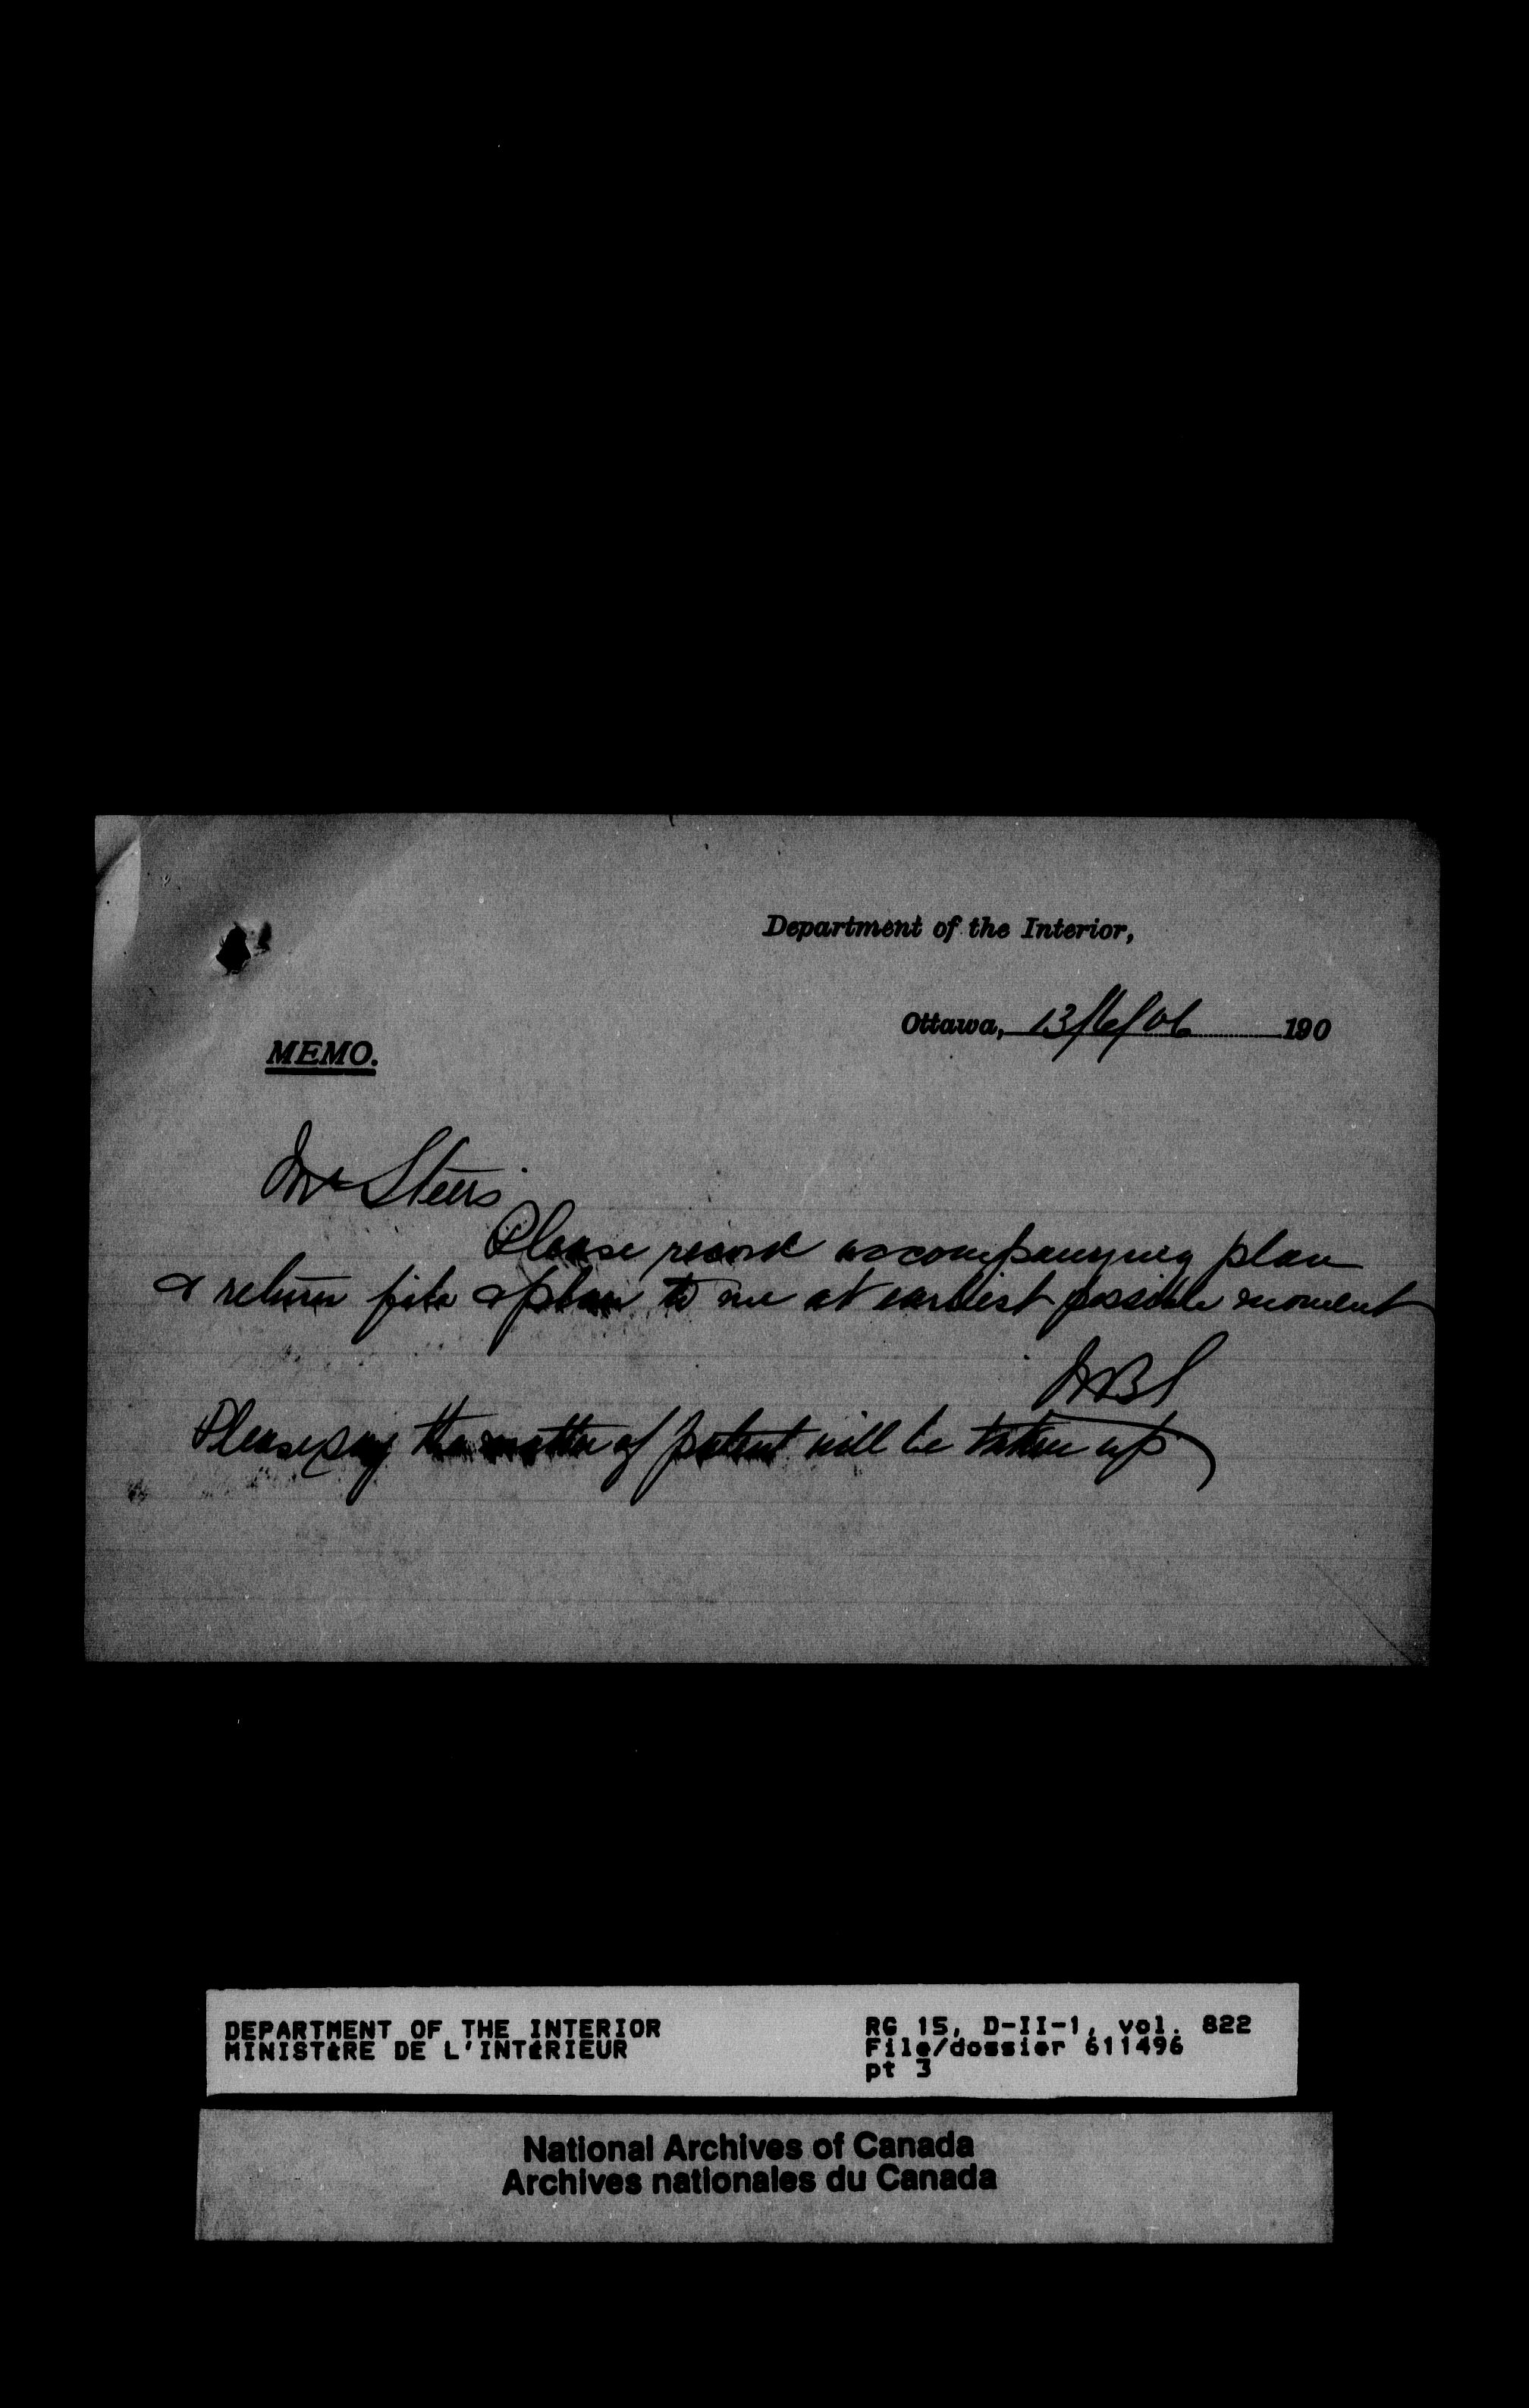 Department of the Interior,
Ottawa, 13/6/06 190
MEMO.
Mr Steers
Please record accompanying plan
& return file & plan to me at earliest possible moment
Please say the matter of patent will be taken up
DEPARTMENT OF THE INTERIOR
MINISTÈRE DE L'INTÉRIEUR
RG 15, D-II-1, vol. 822
File/dossier 611496
pt 3
National Archives of Canada
Archives nationales du Canada